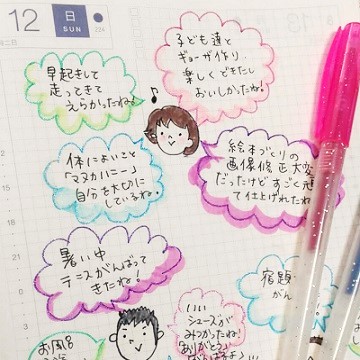 12
日
SUN
224
早起きして
走ってきて
えらかったね!
子ども達と
ギョーザ作り
楽しくできたし
おいしかったね!
体によいこと
「マヌカハニー」
自分を大切に
しているね。
絵本づくりの
画像修正大変
だったけどすごく
て仕上げれたね
暑い中
テニスがんばって
きたね!
宿題
がん
いい
シューズが
みつかったね!
「ありがとう」
お風呂